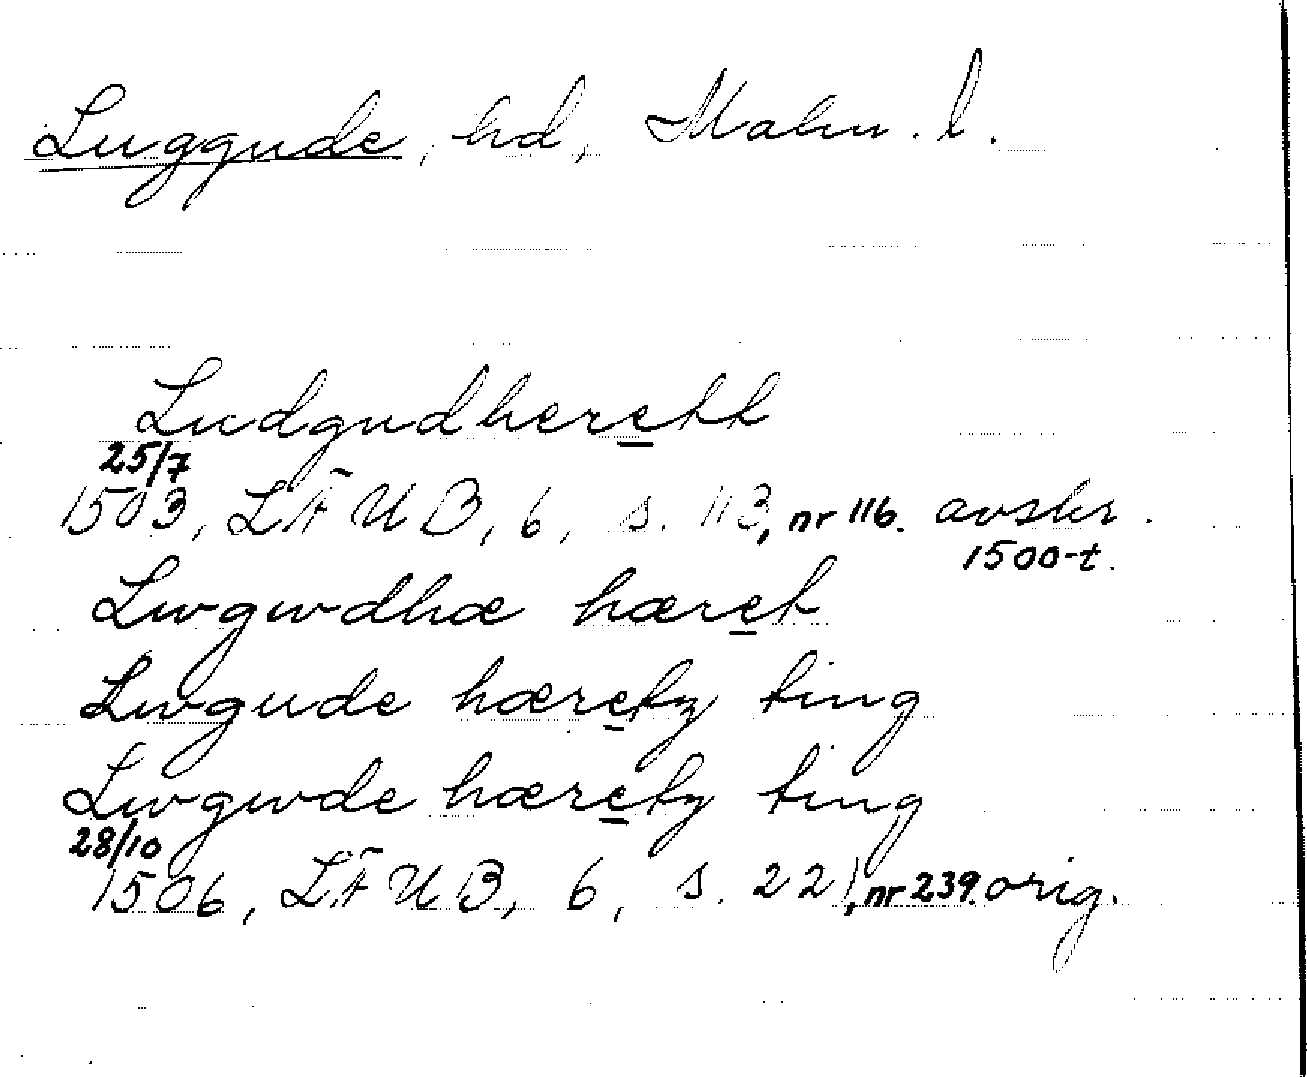 Luggude, hd, Malm. l.
Ludgudherett
25/7
1503, LÄUB, 6, s. 113, nr 116. avskr.
1500-t.
Lwgwdhæ hæret
Lwgude hæretz ting
Lwgwde hæretz ting
28/10
1506, LÄUB, 6, s. 221, nr 239. orig.